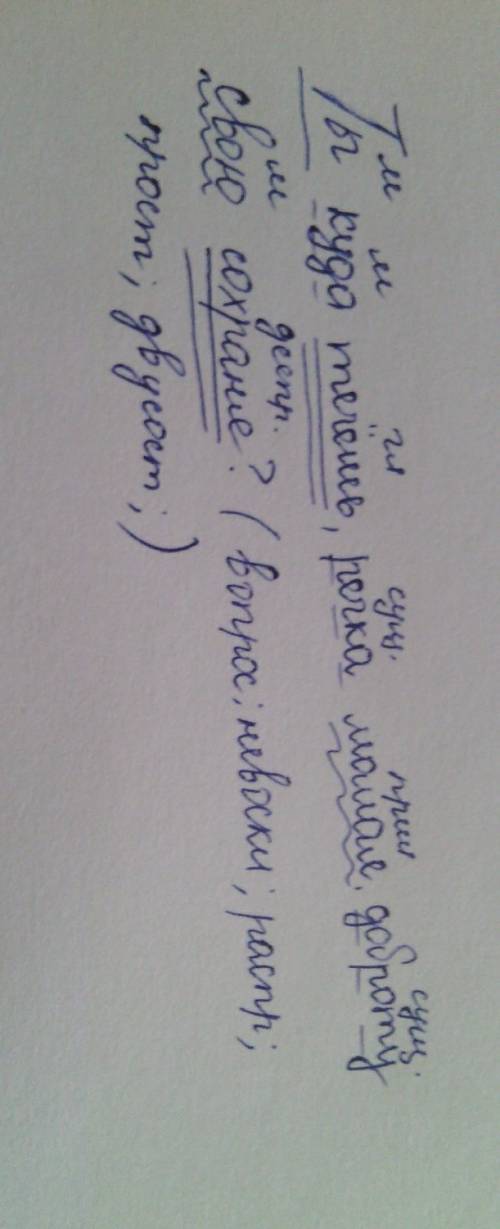 м м гл сущ. прил сущ.
Ты куда течёшь, речка малая, доброту
м деепр.
свою сохрание? (вопрос; невоскл; распр;
прост; двусост;)